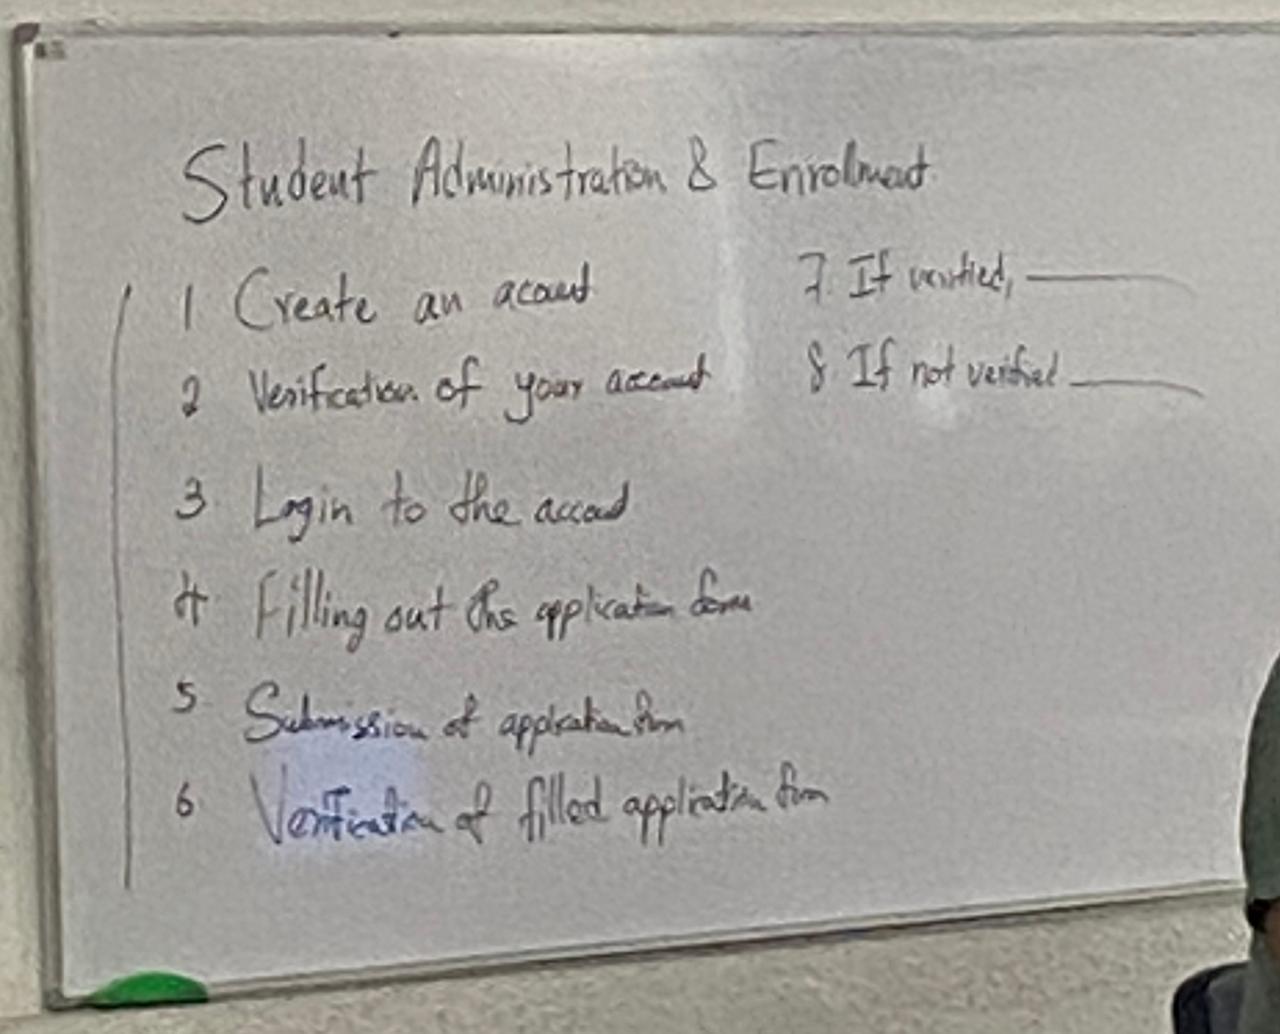 Student Administration & Enrollment
1 Create an acount
2 Verification of your account
3 Login to the account
4 Filling out the application form
5 Submission of application form
6 Verification of filled application form
7. If verified, ______
8 If not verified ______